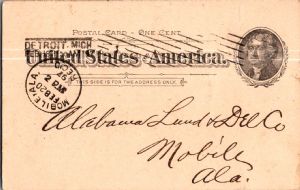 POSTAL CARD - ONE CENT.
DETROIT, MICH.
United States of America.
THIS SIDE IS FOR THE ADDRESS ONLY.
MOBILE, ALA.
FEB 20
Alabama Land & Dev Co
Mobile
Ala.